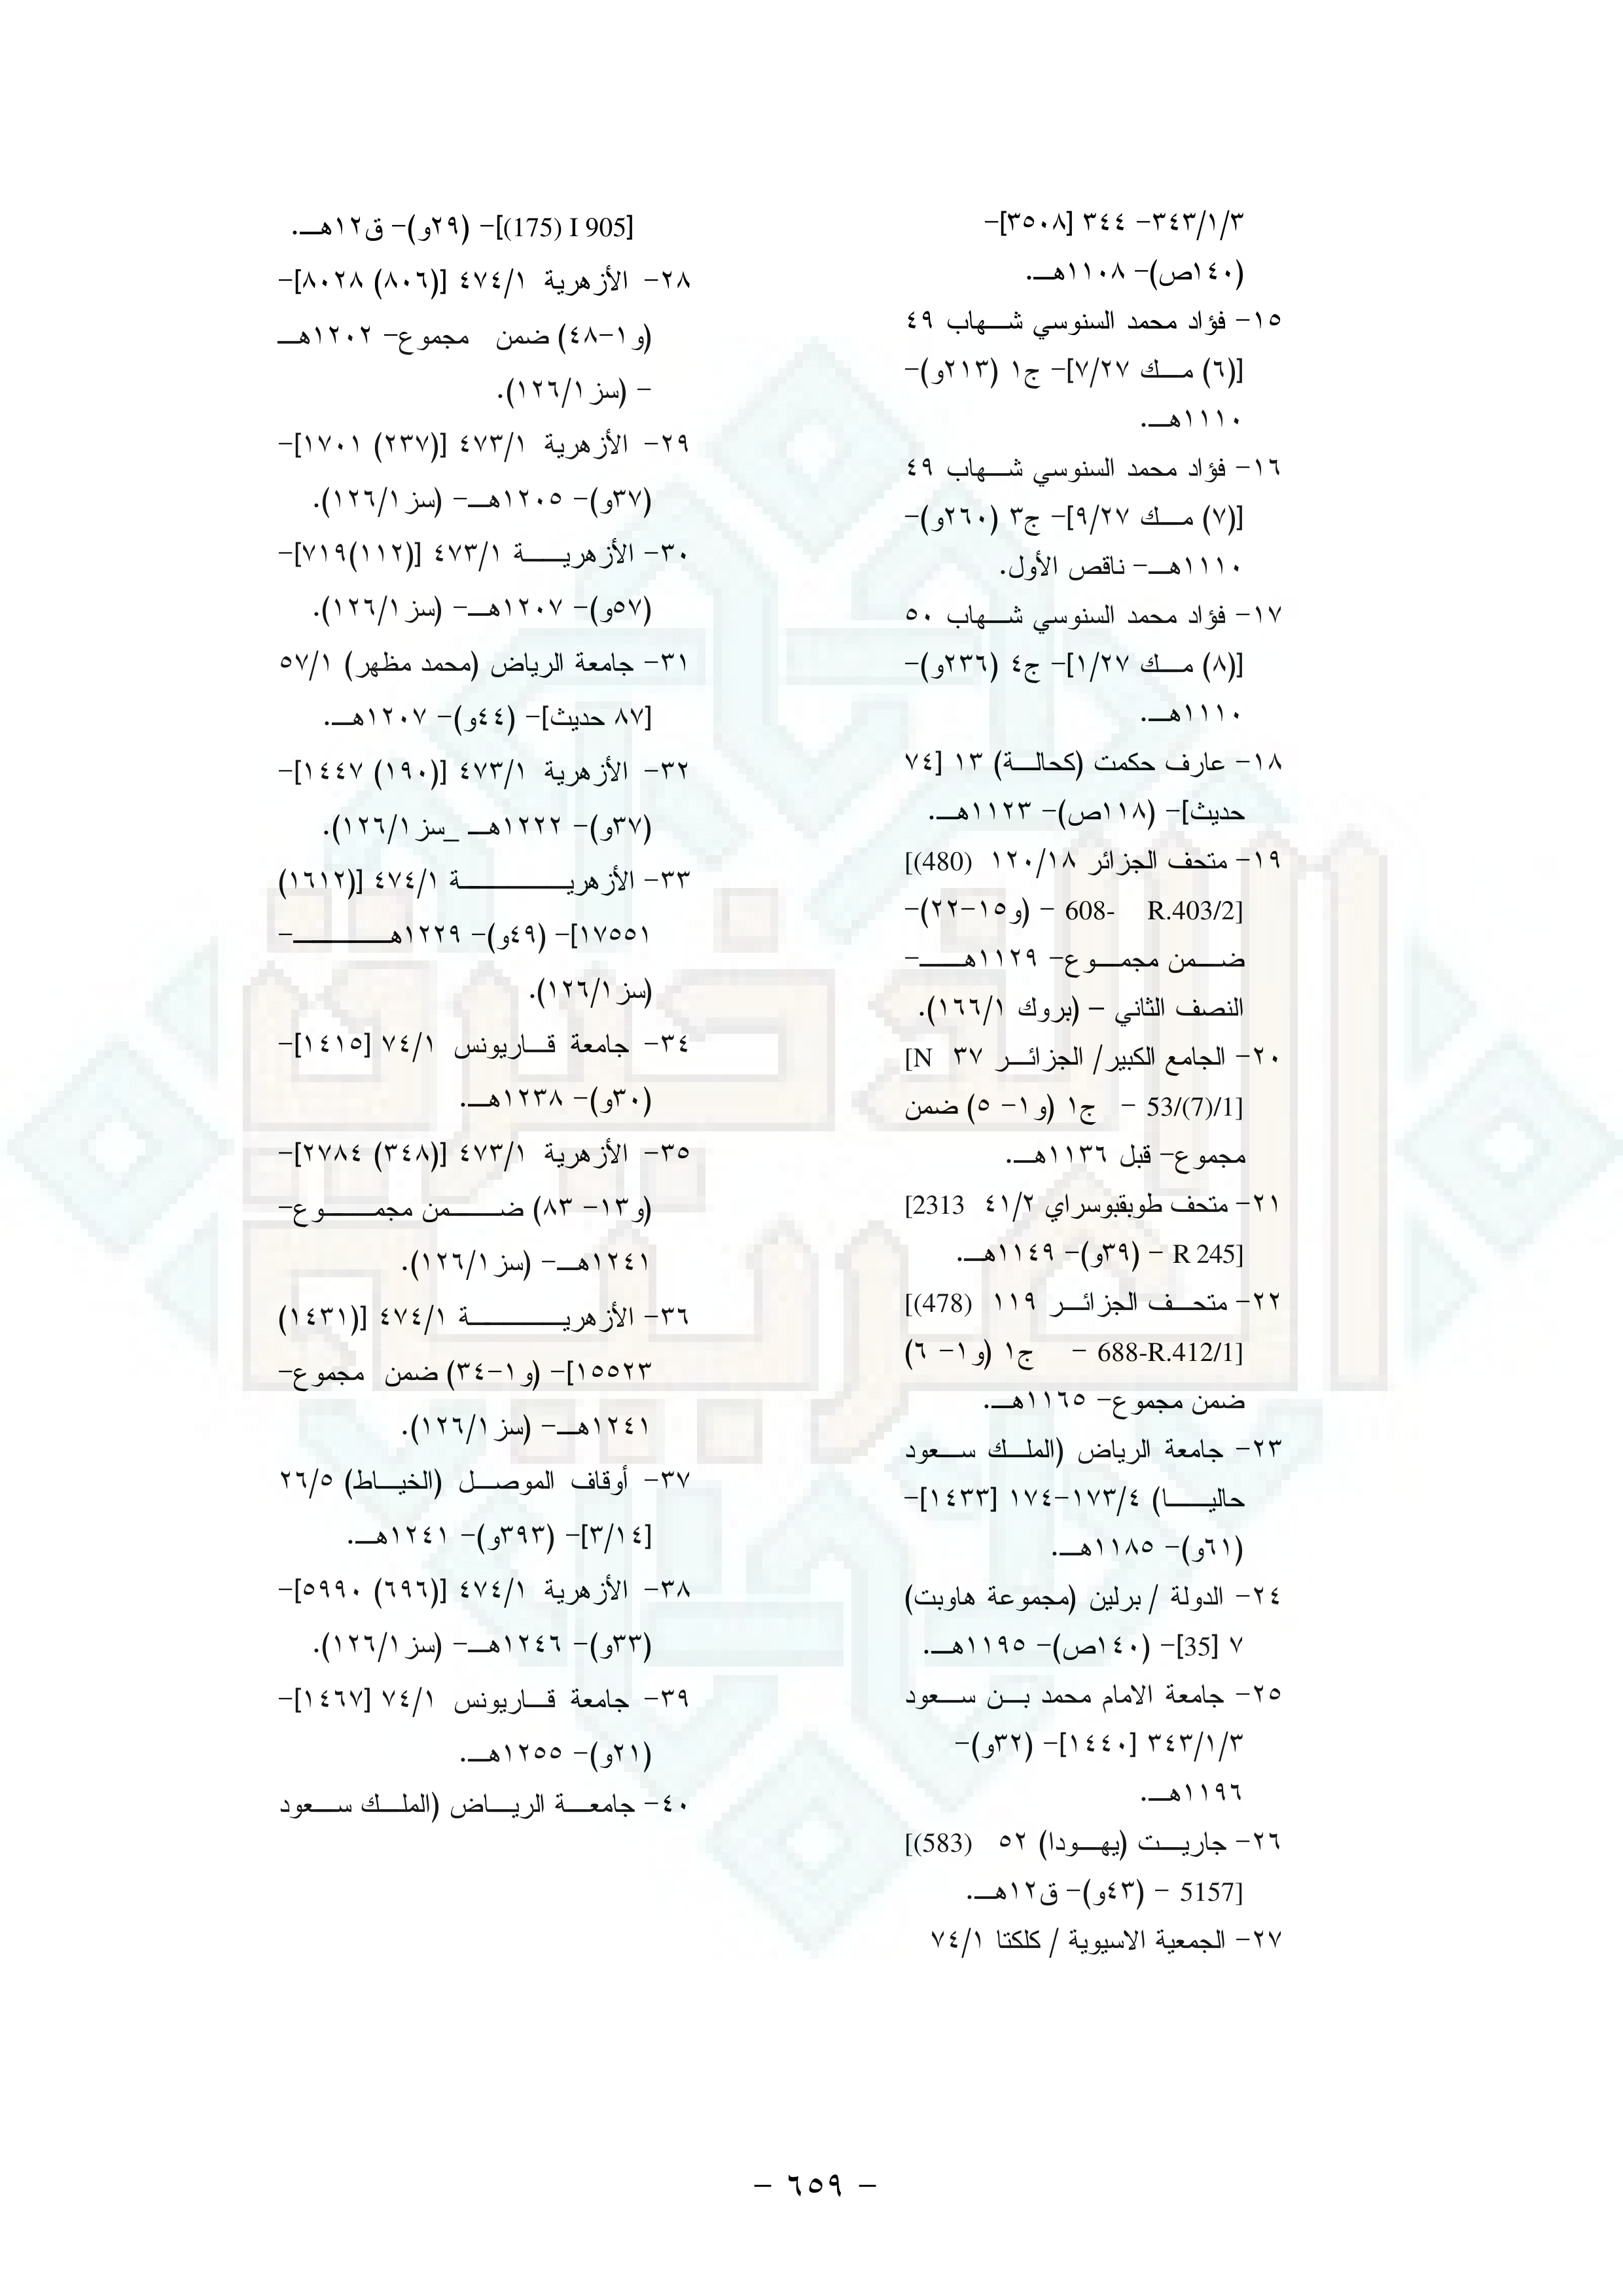 ٣٤٣/١/٣- ٣٤٤ [٣٥٠٨]-
(١٤٠ص)- ١١٠٨هـ.
١٥- فؤاد محمد السنوسي شهاب ٤٩
[(٦) مك ٧/٢٧]- ج١ (٢١٣و)-
١١١٠هـ.
١٦- فؤاد محمد السنوسي شهاب ٤٩
[(٧) مك ٩/٢٧]- ج٣ (٢٦٠و)-
١١١٠هـ- ناقص الأول.
١٧- فؤاد محمد السنوسي شهاب ٥٠
[(٨) مك ١/٢٧]- ج٤ (٢٣٦و)-
١١١٠هـ.
١٨- عارف حكمت (كحالة) ١٣ [٧٤
حديث]- (١١٨ص)- ١١٢٣هـ.
١٩- متحف الجزائر ١٢٠/١٨ [(480)
608- R.403/2] - (و١٥-٢٢)-
ضمن مجموع- ١١٢٩هـ-
النصف الثاني – (بروك ١٦٦/١).
٢٠- الجامع الكبير/ الجزائر ٣٧ [N
53/(7)/1] - ج١ (و١- ٥) ضمن
مجموع- قبل ١١٣٦هـ.
٢١- متحف طوبقبوسراي ٤١/٢ [2313
R 245] - (٣٩و)- ١١٤٩هـ.
٢٢- متحف الجزائر ١١٩ [(478)
688-R.412/1] - ج١ (و١- ٦)
ضمن مجموع- ١١٦٥هـ.
٢٣- جامعة الرياض (الملك سعود
حاليا) ١٧٣/٤-١٧٤ [١٤٣٣]-
(٦١و)- ١١٨٥هـ.
٢٤- الدولة / برلين (مجموعة هاوبت)
٧ [35]- (١٤٠ص)- ١١٩٥هـ.
٢٥- جامعة الامام محمد بن سعود
٣٤٣/١/٣ [١٤٤٠]- (٣٢و)-
١١٩٦هـ.
٢٦- جاريت (يهودا) ٥٢ [(583)
5157] - (٤٣و)- ق١٢هـ.
٢٧- الجمعية الاسيوية / كلكتا ٧٤/١
[905 I (175)]- (٢٩و)- ق١٢هـ.
٢٨- الأزهرية ٤٧٤/١ [(٨٠٦) ٨٠٢٨]-
(و١-٤٨) ضمن مجموع- ١٢٠٢هـ
- (سز١٢٦/١).
٢٩- الأزهرية ٤٧٣/١ [(٢٣٧) ١٧٠١]-
(٣٧و)- ١٢٠٥هـ- (سز١٢٦/١).
٣٠- الأزهرية ٤٧٣/١ [(١١٢)٧١٩]-
(٥٧و)- ١٢٠٧هـ- (سز١٢٦/١).
٣١- جامعة الرياض (محمد مظهر) ٥٧/١
[٨٧ حديث]- (٤٤و)- ١٢٠٧هـ.
٣٢- الأزهرية ٤٧٣/١ [(١٩٠) ١٤٤٧]-
(٣٧و)- ١٢٢٢هـ _سز١٢٦/١).
٣٣- الأزهرية ٤٧٤/١ [(١٦١٢)
١٧٥٥١]- (٤٩و)- ١٢٢٩هـ-
(سز١٢٦/١).
٣٤- جامعة قاريونس ٧٤/١ [١٤١٥]-
(٣٠و)- ١٢٣٨هـ.
٣٥- الأزهرية ٤٧٣/١ [(٣٤٨) ٢٧٨٤]-
(و١٣- ٨٣) ضمن مجموع-
١٢٤١هـ- (سز١٢٦/١).
٣٦- الأزهرية ٤٧٤/١ [(١٤٣١)
١٥٥٢٣]- (و١-٣٤) ضمن مجموع-
١٢٤١هـ- (سز١٢٦/١).
٣٧- أوقاف الموصل (الخياط) ٢٦/٥
[٣/١٤]- (٣٩٣و)- ١٢٤١هـ.
٣٨- الأزهرية ٤٧٤/١ [(٦٩٦) ٥٩٩٠]-
(٣٣و)- ١٢٤٦هـ- (سز١٢٦/١).
٣٩- جامعة قاريونس ٧٤/١ [١٤٦٧]-
(٢١و)- ١٢٥٥هـ.
٤٠- جامعة الرياض (الملك سعود
- ٦٥٩ -